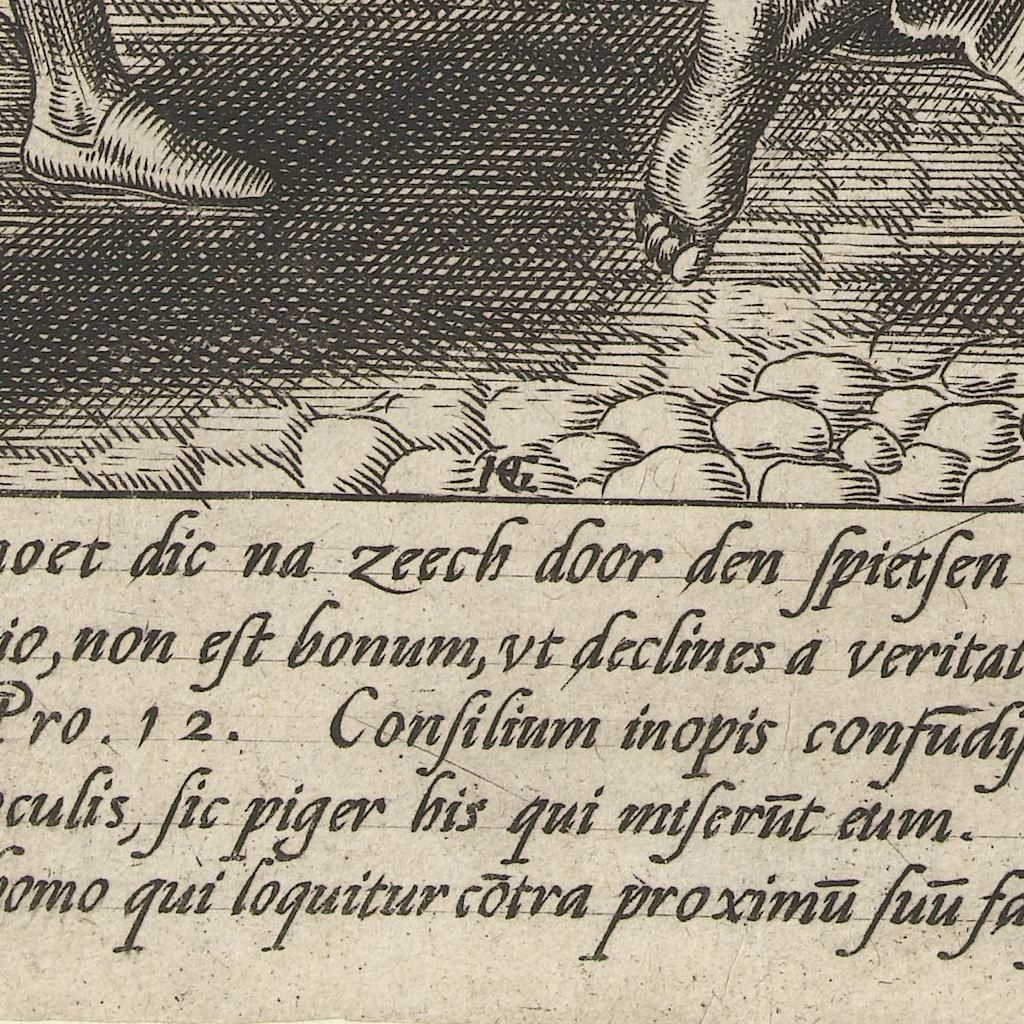 HG
moet dic na zeech door den ſpietſen
io, non eſt bonum, vt declines a veritat
Pro. 12. Conſilium inopis confūdiſ
oculis, ſic piger his qui miſerūt eum.
homo qui loquitur cōtra proximū ſuū fa